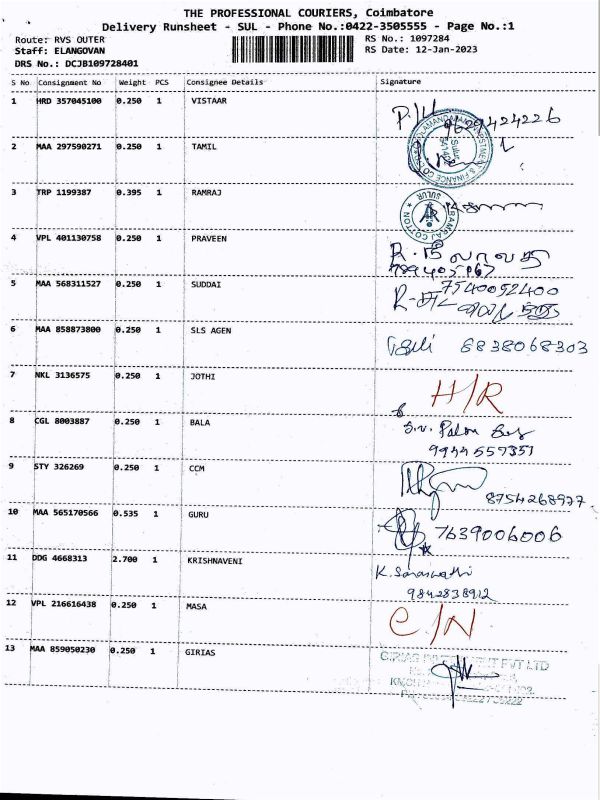 THE PROFESSIONAL COURIERS, Coimbatore
Delivery Runsheet - SUL - Phone No.:0422-3505555 - Page No.:1
Route: RVS OUTER
RS No.: 1097284
Staff: ELANGOVAN
RS Date: 12-Jan-2023
DRS No.: DCJB109728401
S No Consignment No Weight PCS Consignee Details Signature
1 HRD 357045100 0.250 1 VISTAAR
9629424226
2 MAA 297590271 0.250 1 TAMIL
3 TRP 1199387 0.395 1 RAMRAJ
RAMRAJ COTTON
SULUR
4 VPL 401130758 0.250 1 PRAVEEN
5 MAA 568311527 0.250 1 SUDDAI 7540052400
6 MAA 858873800 0.250 1 SLS AGEN 8838068303
7 NKL 3136575 0.250 1 JOTHI H/R
8 CGL 8003887 0.250 1 BALA
9944557351
9 STY 326269 0.250 1 CCM
8754268977
10 MAA 565170566 0.535 1 GURU 7639006006
11 DDG 4668313 2.700 1 KRISHNAVENI K. Saraswathi
9842838912
12 VPL 216616438 0.250 1 MASA C/N
13 MAA 859050230 0.250 1 GIRIAS GIRIAS INVESTMENT PVT LTD